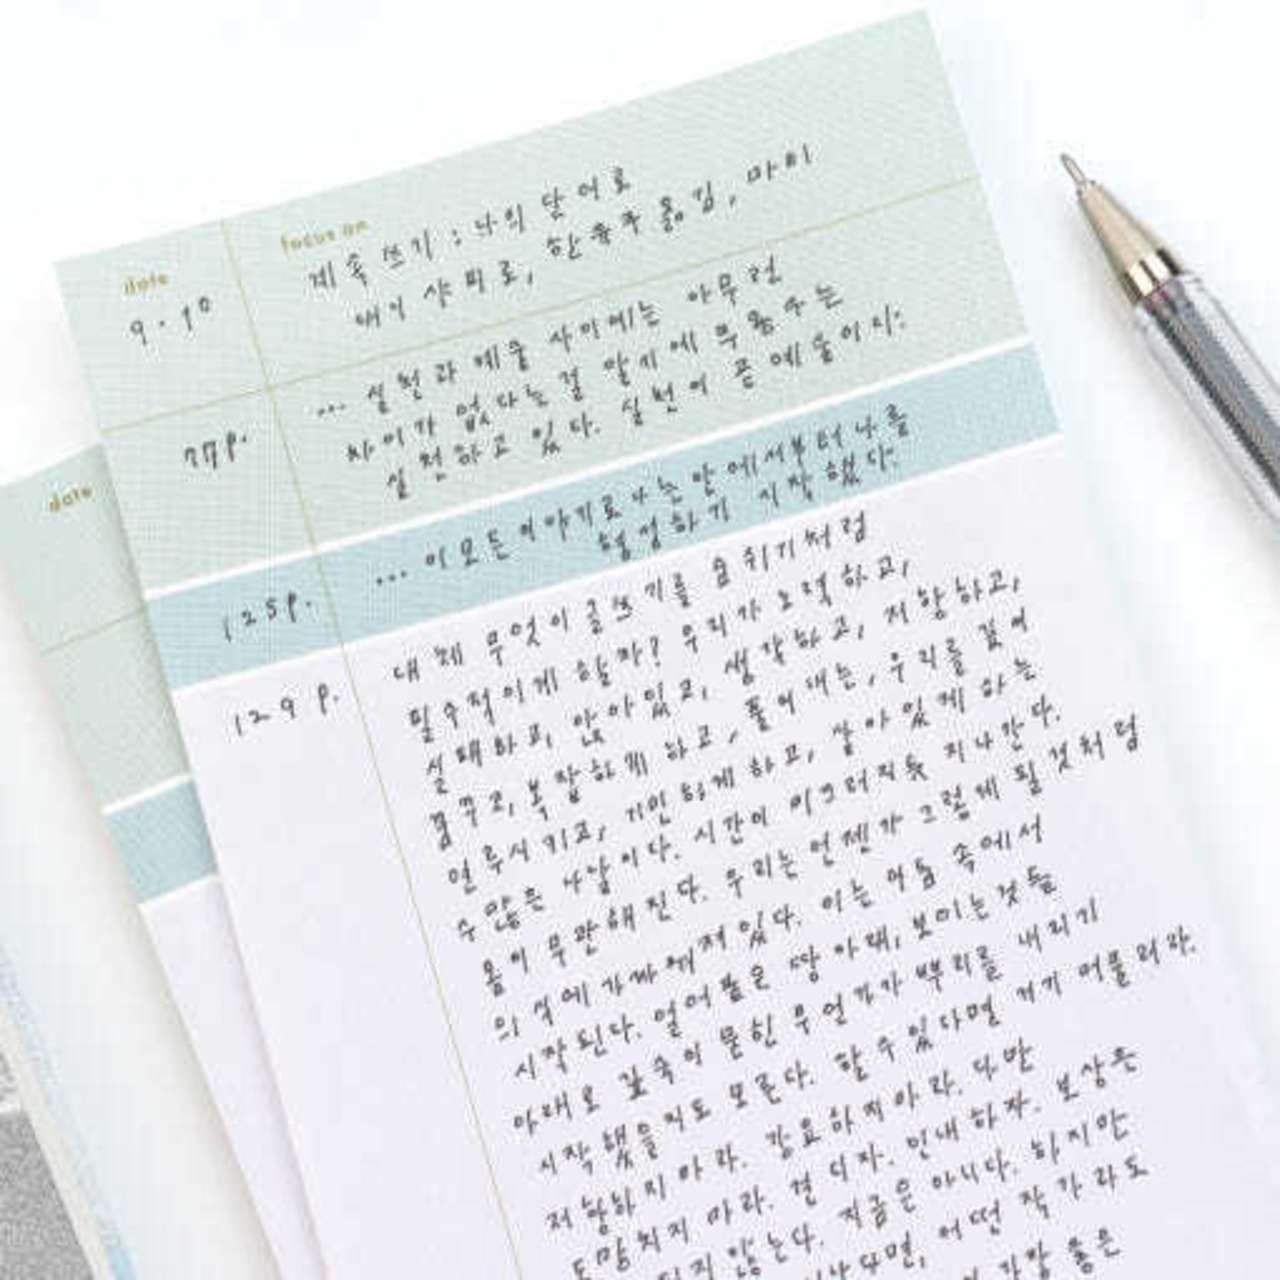 date
focus on
9. 10
계속 쓰기 : 나의 단어로
대니 샤피로, 한유주 옮김, 마티
77p.
... 실천과 예술 사이에는 아무런
차이가 없다는 걸 알기에 무용수는
실천하고 있다. 실천이 곧 예술이지.
125p.
... 이 모든 이야기로 나는 안에서부터 나를
형성하기 시작했다.
129p.
대체 무엇이 글쓰기를 숨 쉬기처럼
필수적이게 할까? 우리가 노력하고,
실패하고, 앉아있고, 생각하고, 저항하고,
꿈꾸고, 복잡하게 하고, 풀어내는, 우리를 깊이
연루시키고, 기민하게 하고, 살아있게 하는
수많은 나날이다. 시간이 미끄러지듯 지나간다.
몸이 무관해진다. 우리는 언젠가 그렇게 될 것처럼
의식에 가까워져 있다. 이는 어둠 속에서
시작된다. 얼어붙은 땅 아래, 보이는 것들
아래로 깊숙이 묻힌 무언가가 뿌리를 내리기
시작했을지도 모른다. 할 수 있다면 거기 머물러라.
저항하지 마라. 강요하지 마라. 다만
도망치지 마라. 견디자. 인내하자. 보상은
되지 않는다. 지금은 아니다. 하지만
어떤 작가라도
가장 좋은
date